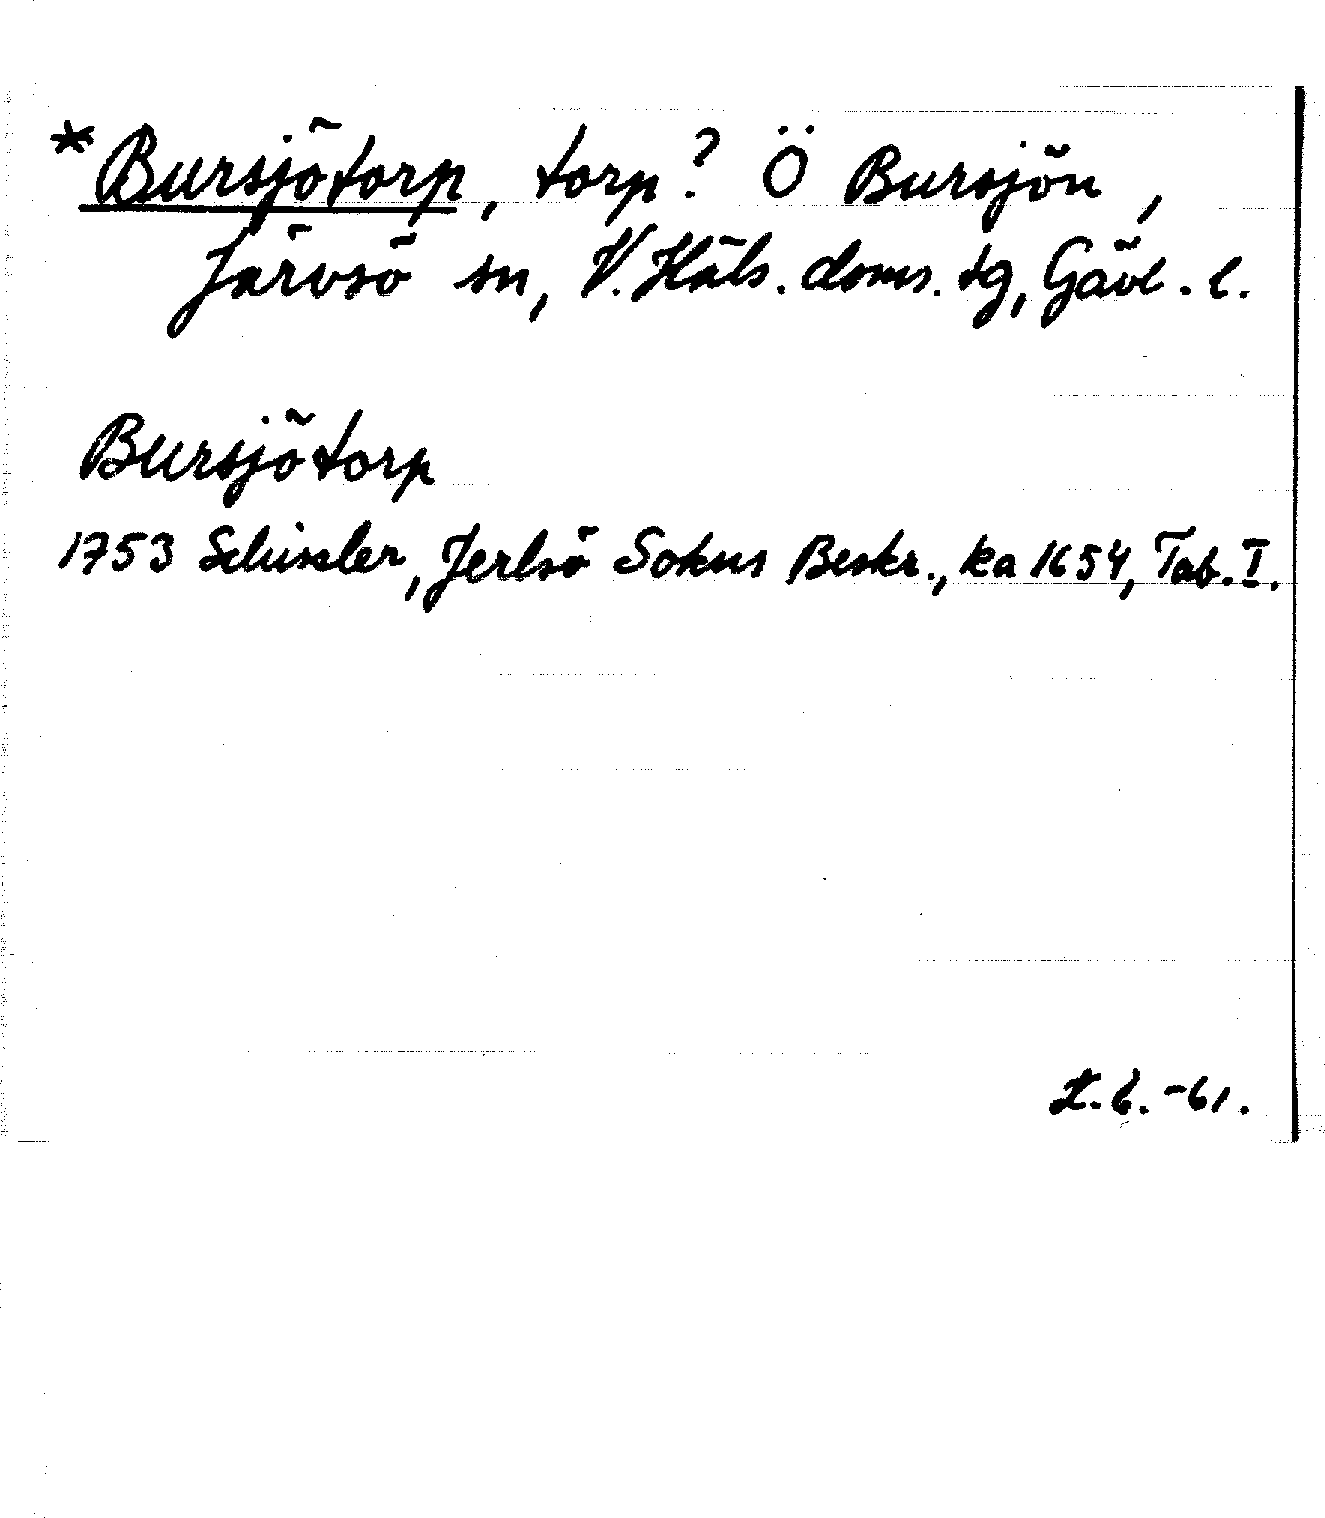 *Bursjötorp, torp? Ö Bursjön,
Järvsö sn, V. Häls. doms. tg, Gävl. l.
Bursjötorp
1753 Schissler, Jerlsö Sokns Beskr., ka 1654, Tab. I.
-61.